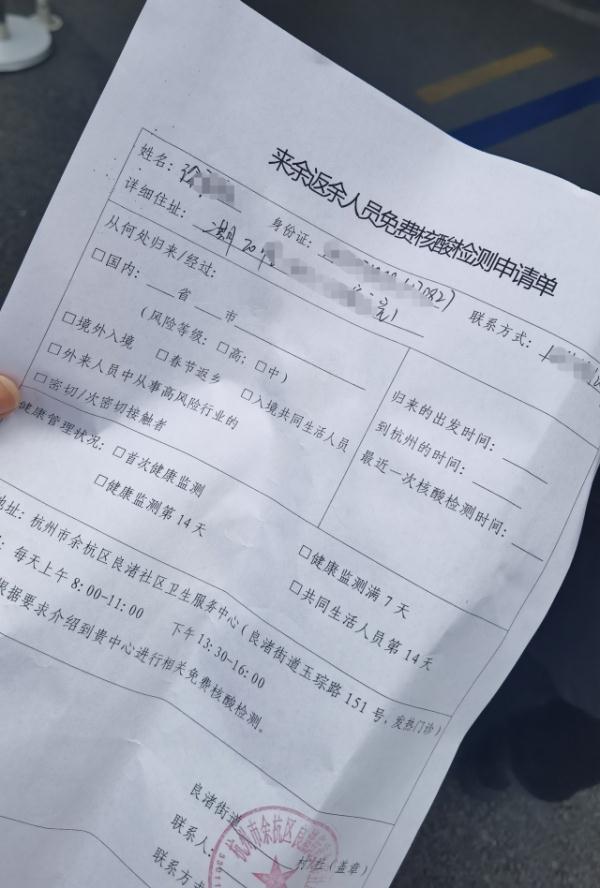 来余返余人员免费核酸检测申请单
姓名：徐
身份证：
联系方式：
详细住址：
从何处归来/经过：
□国内：___省___市
（风险等级：□高；□中）
□境外入境 □春节返乡 □入境共同生活人员
□外来人员中从事高风险行业的
□密切/次密切接触者
归来的出发时间：
到杭州的时间：
最近一次核酸检测时间：
健康管理状况：□首次健康监测 □健康监测满7天
□健康监测第14天 □共同生活人员第14天
地址：杭州市余杭区良渚社区卫生服务中心（良渚街道玉琮路151号，发热门诊）
：每天上午8:00-11:00 下午13:30-16:00
根据要求介绍到贵中心进行相关免费核酸检测。
良渚街道 村/社（盖章）
联系人：
联系方式
杭州市余杭区良渚